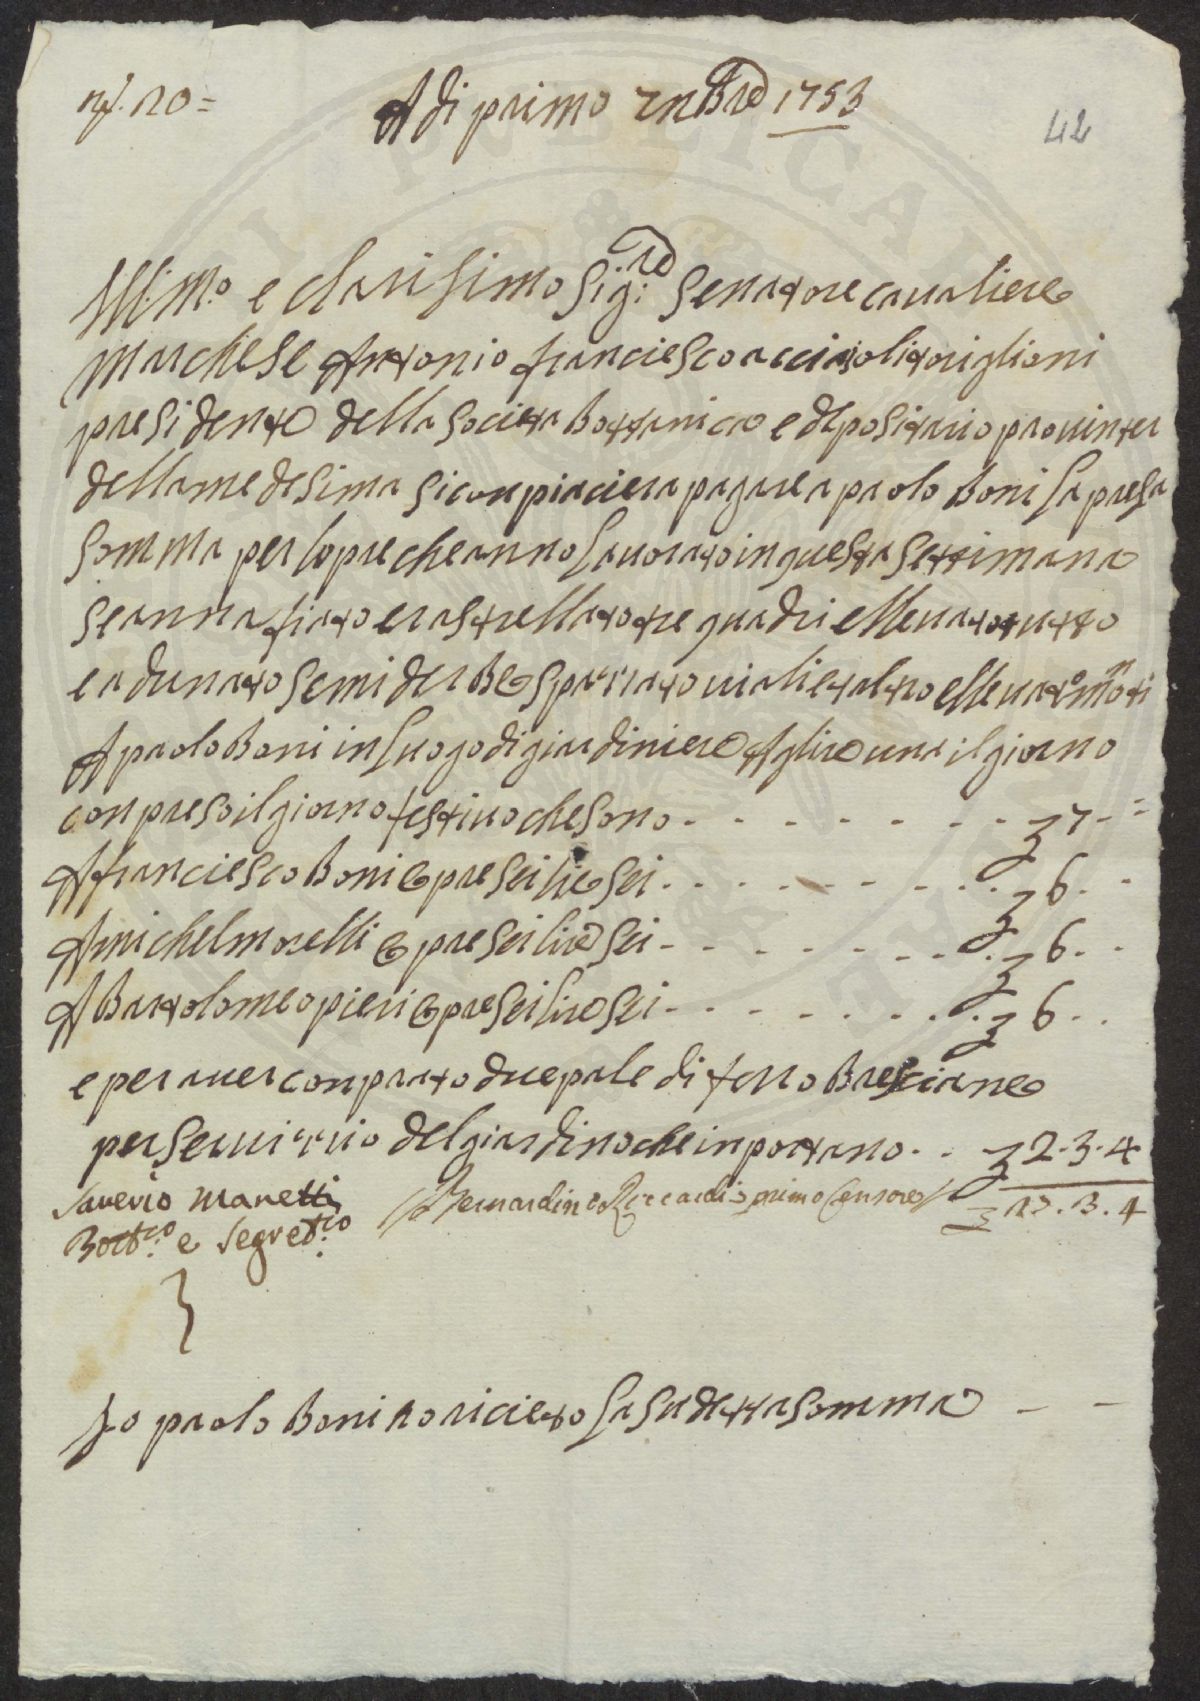 nº. 20=
A di primo 7nbre 1753
42
Ill:m:o e clarisimo Sig:re Senatore cavaliere
marchese Antonio franciesco acciaioli toriglioni
presidente della Societa Bottanica e dipositario provinter
della medesima si conpiaciera pagare a paolo Boni la presa
Somma per lopre che anno lavorato in questa Settimana
Se annafiato e rastrellato tre quadri ellevato tutto
e adunato Semi der Be Spazzato viali et altro ellevato monti
A paolo Boni in luogo di giardiniere A lire una il giorno
conpreso il giorno festivo che sono - - - - - - - - £ 7 - =
A franciesco Boni e pre Sei lire Sei - - - - - - - - £ 6 - -
A michel morelli e pre Sei lire Sei - - - - - - - - £ 6 - -
A Bartolomeo pieri e pre Sei lire Sei - - - - - - - £ 6 . .
e per aver conprato due pale di ferro Bresciane
per Servizzio del giardino che inportano . . £ 2.3.4
Saverio Manetti
Bott:co e Segret:rio
Bernardino Riccardi primo Censore
£ 27.3.4
Io paolo Boni o ricieuto la Sudetta Somma - -